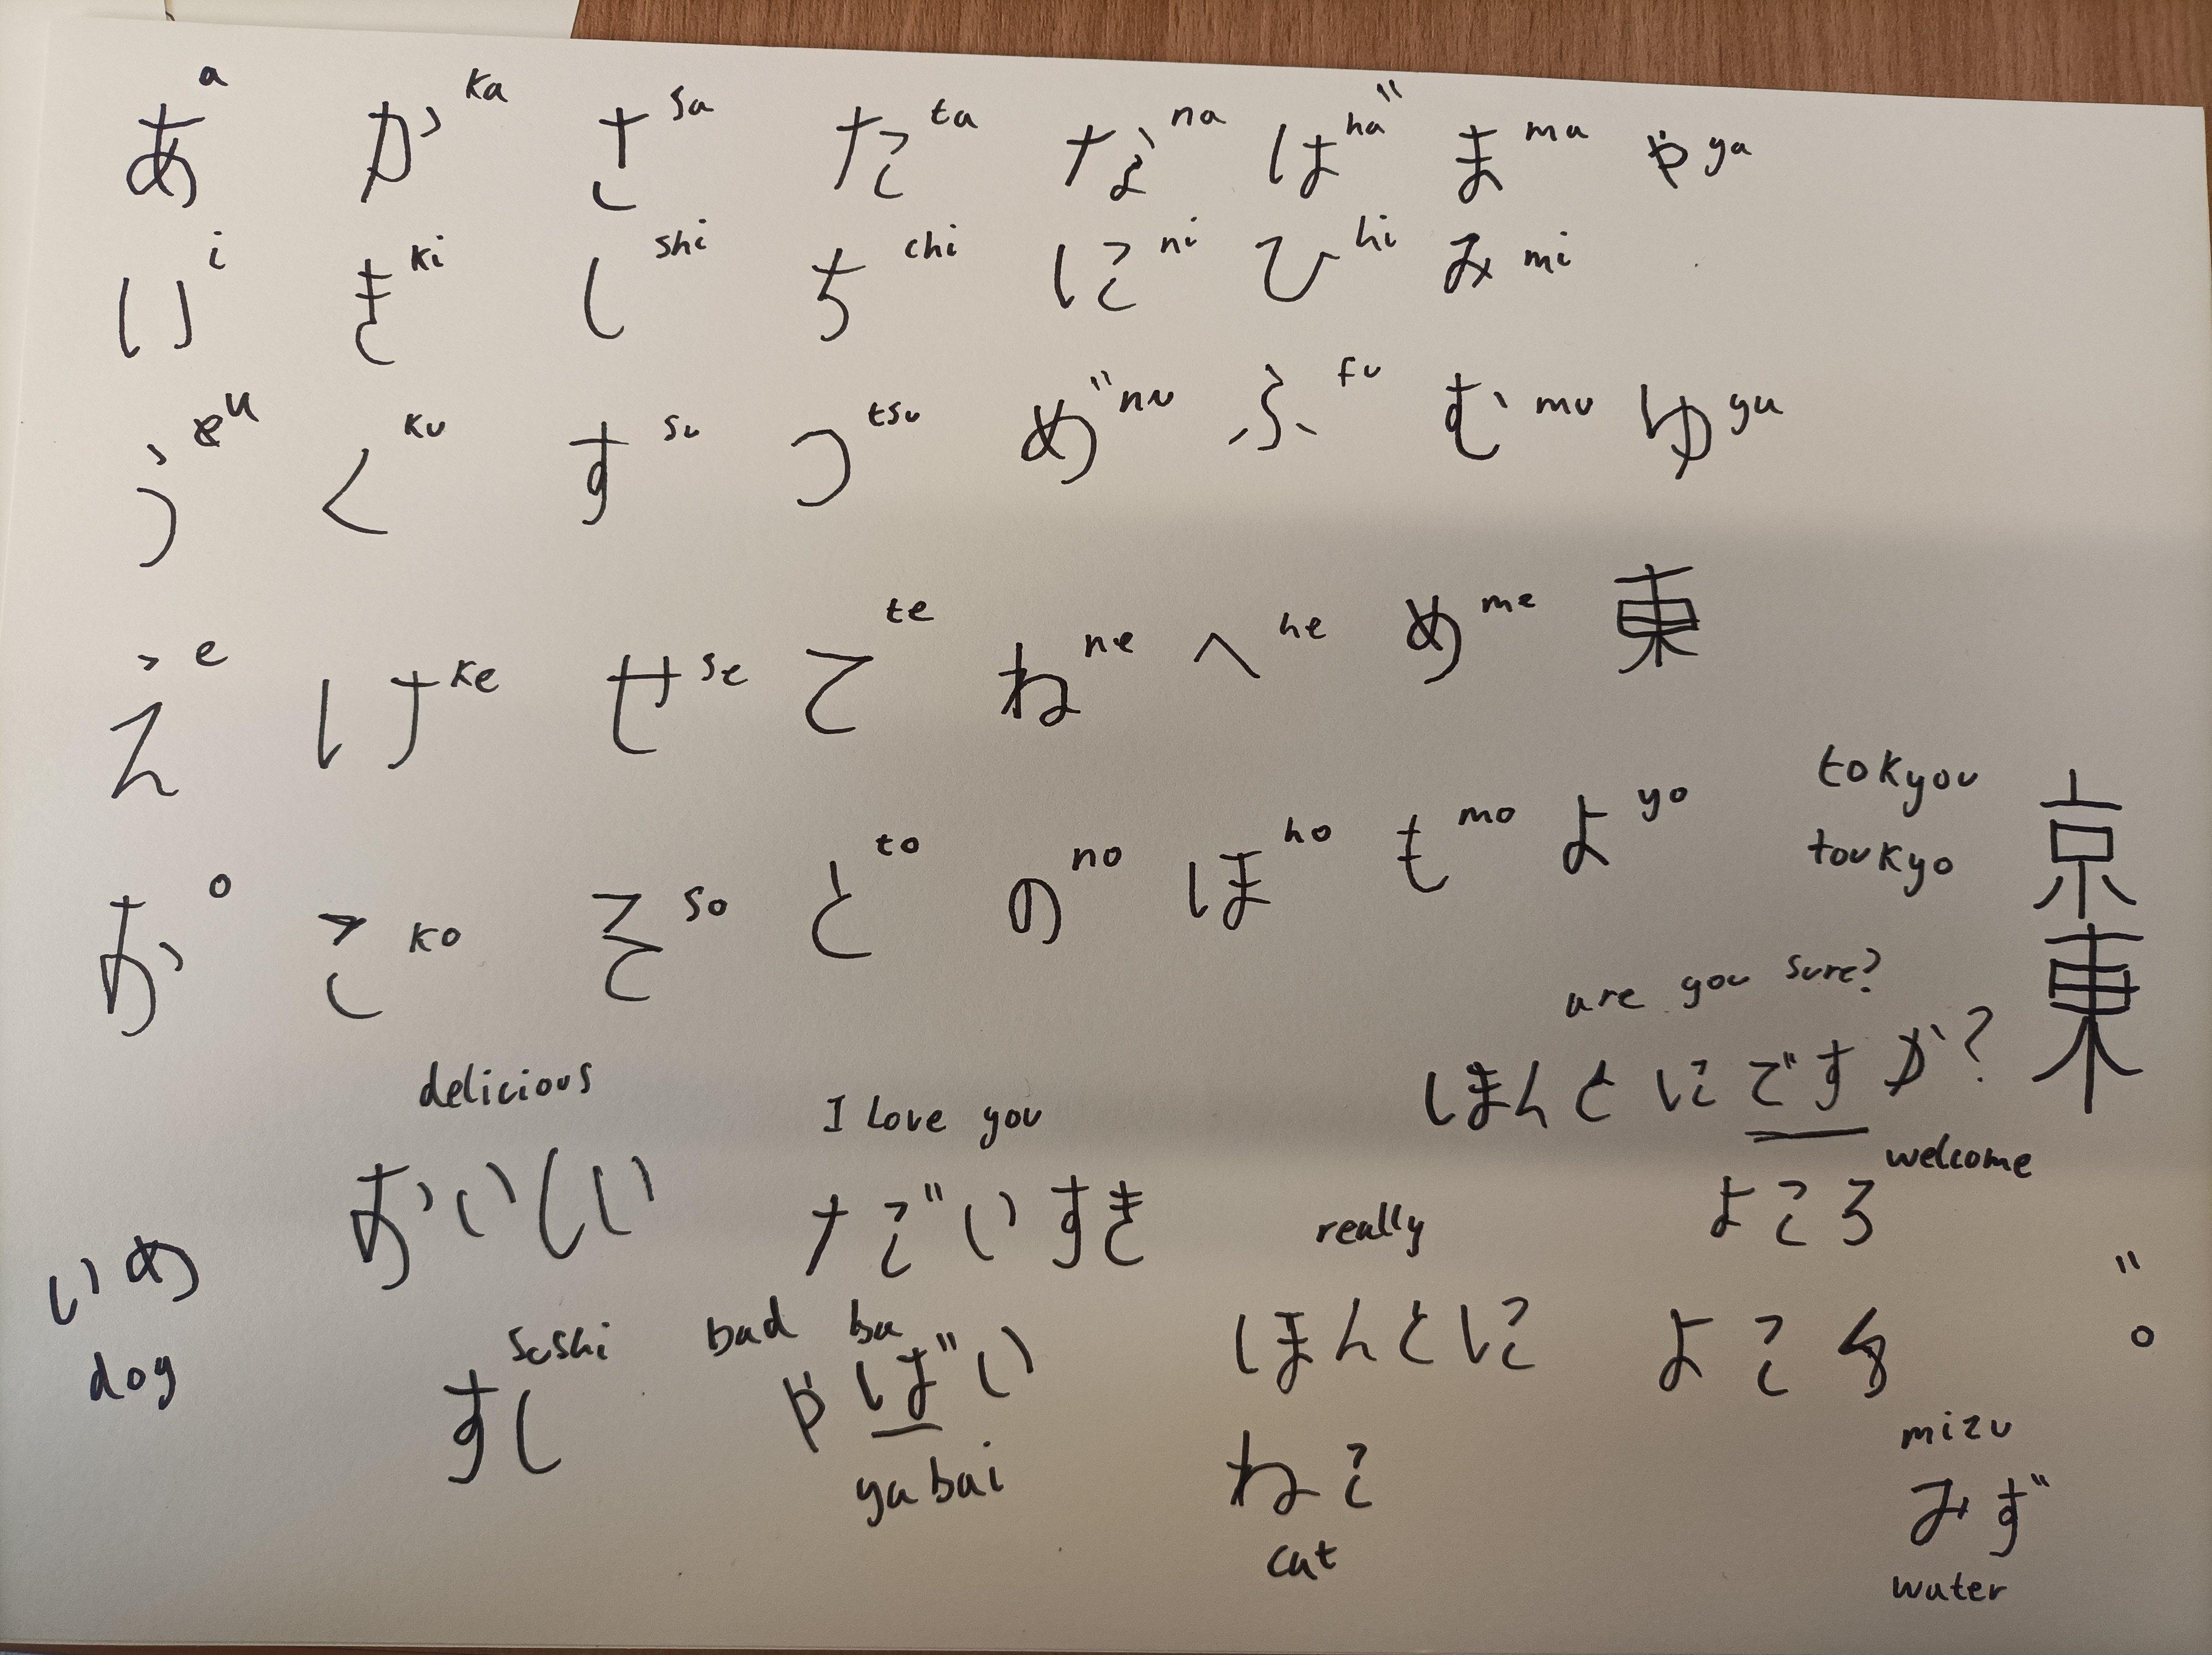 あ a か ka さ sa た ta な na は ha " ま ma や ya
い i き ki し shi ち chi に ni ひ hi み mi
う u く ku す su つ tsu め " nu ふ fu む mu ゆ yu
え e け ke せ se て te ね ne へ he め me 東
お o こ ko そ so と to の no ほ ho も mo よ yo
tokyou
toukyo
京東
are you sure?
ほんとにですか?
delicious
おいしい
I love you
だいすき
really
ほんとに
welcome
よころ
よこ
"
。
いめ
dog
sushi
すし
bad ba
やばい
yabai
ねこ
cat
mizu
みず
water